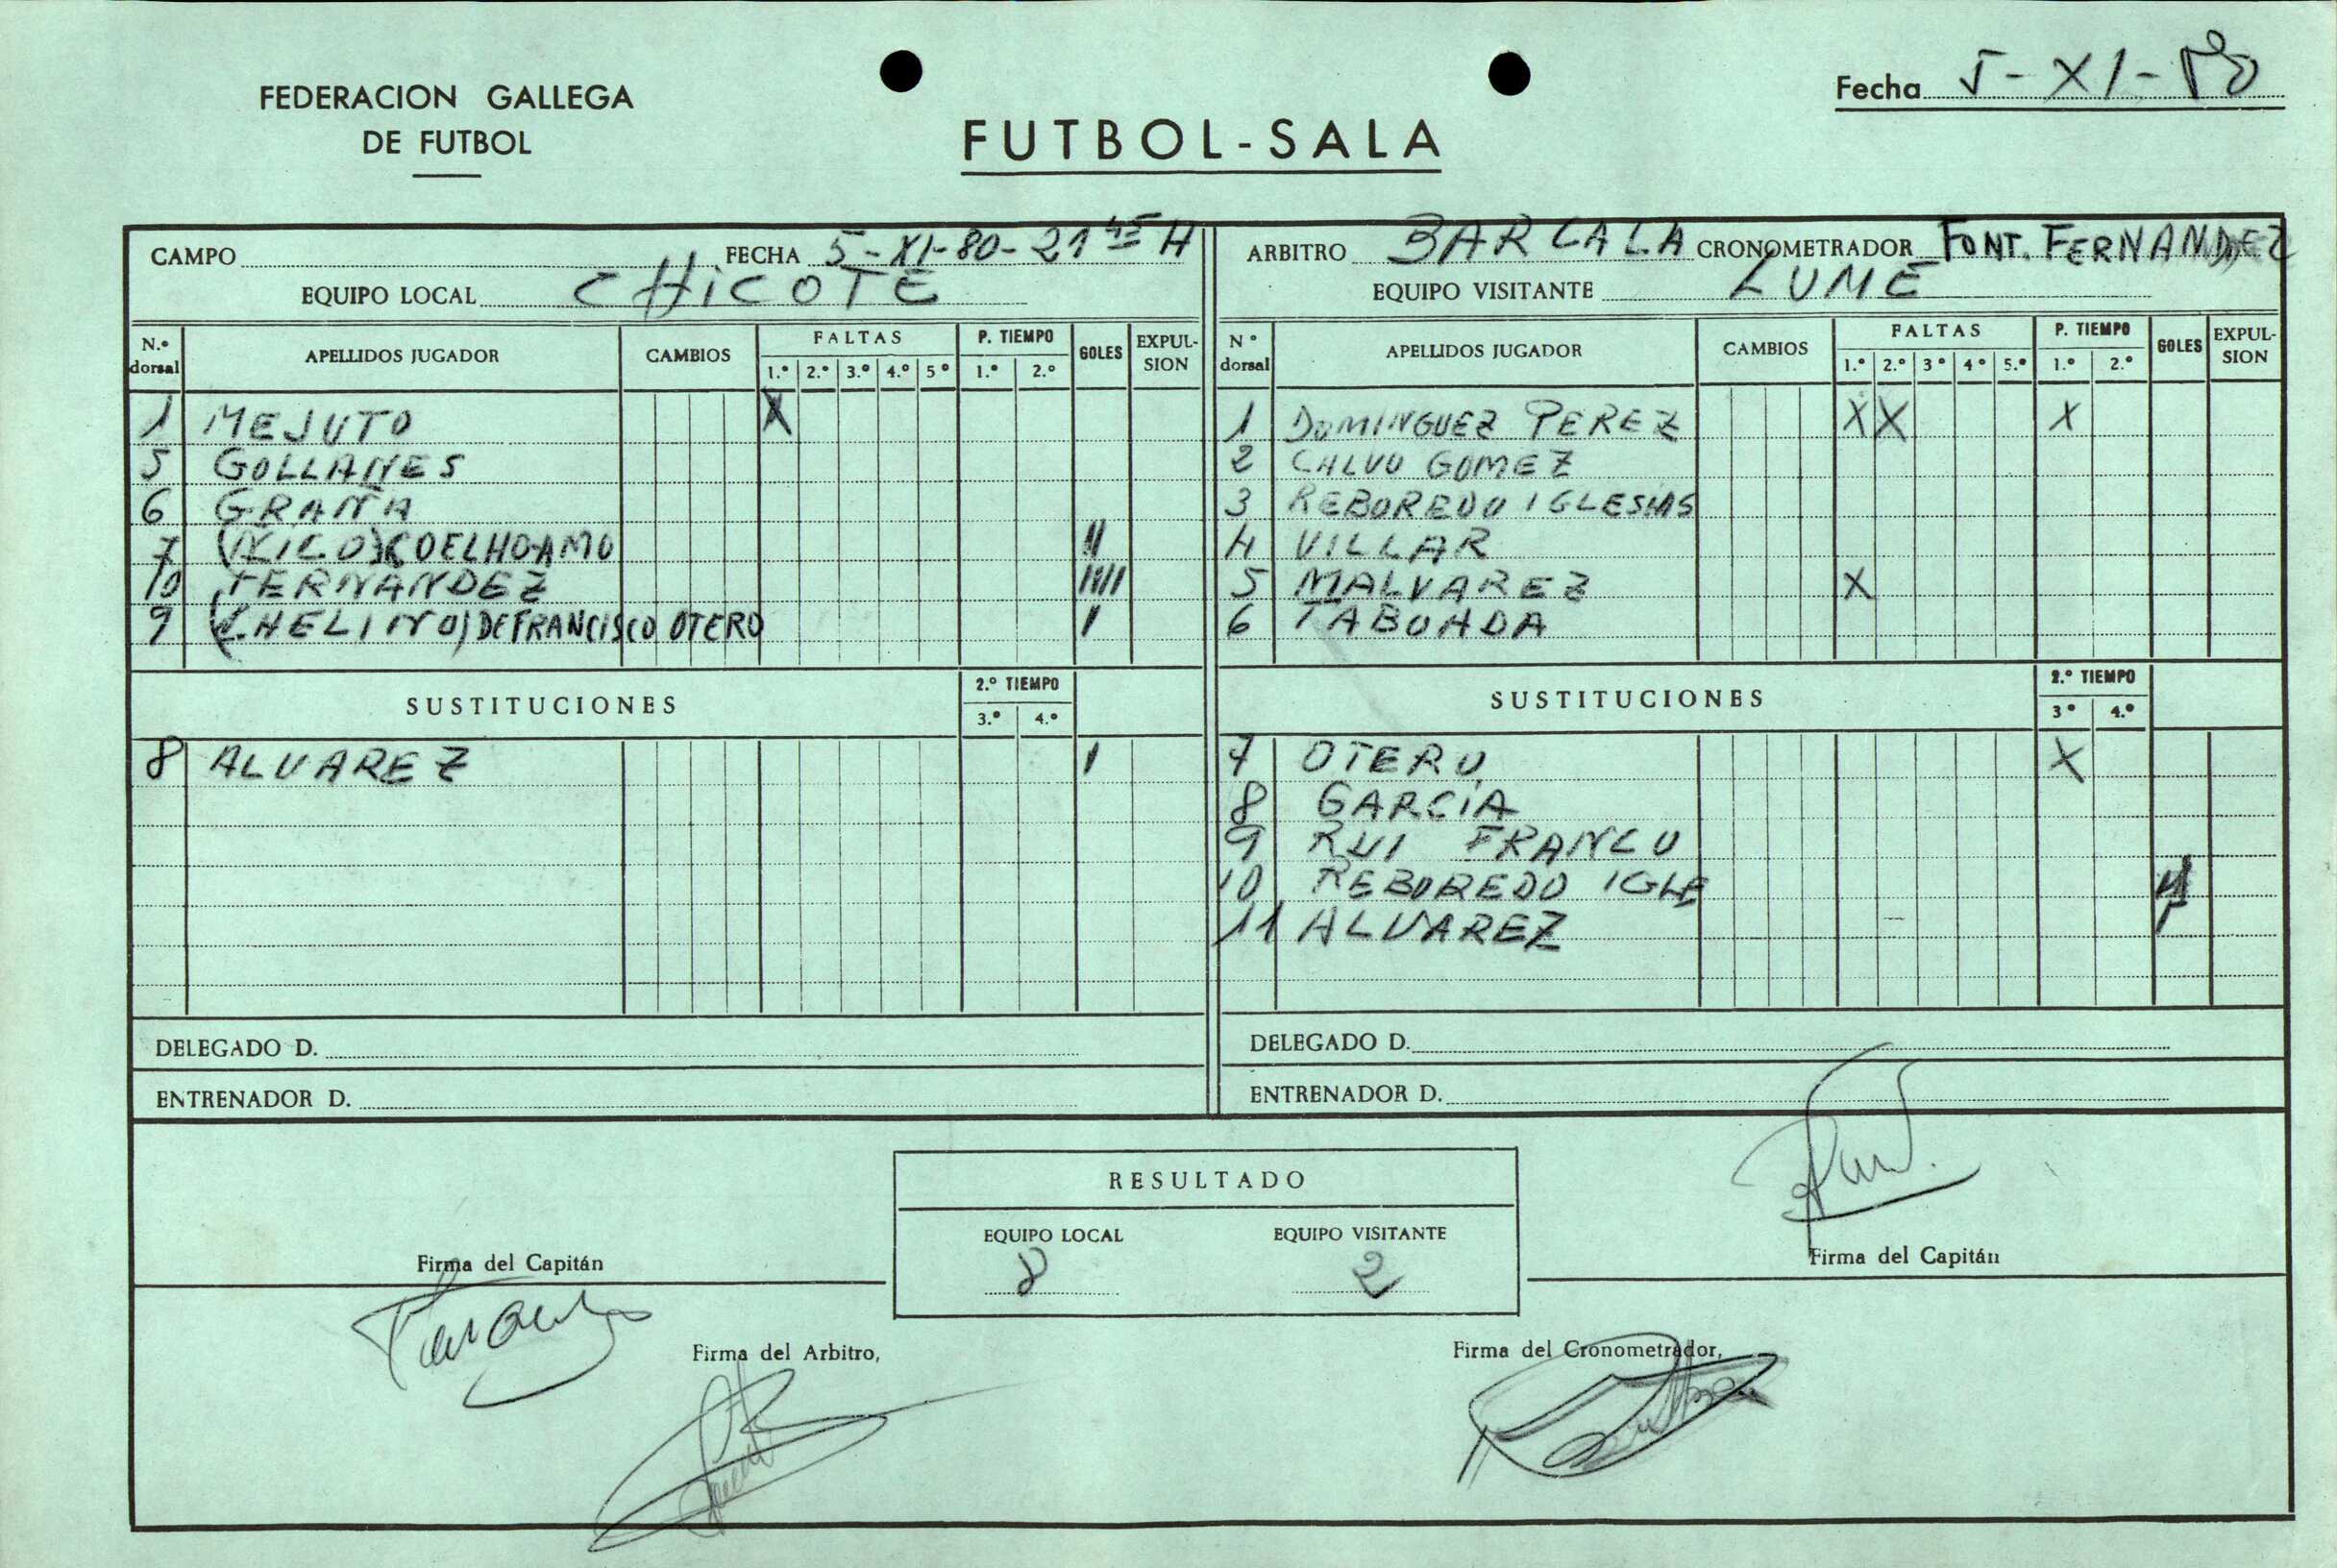 FEDERACION GALLEGA
DE FUTBOL
FUTBOL-SALA
Fecha 5-XI-80
CAMPO FECHA 5-XI-80-21 45 H
EQUIPO LOCAL CHICOTE
N.º dorsal APELLIDOS JUGADOR CAMBIOS FALTAS 1.º 2.º 3.º 4.º 5º P. TIEMPO 1.º 2.º GOLES EXPUL-SION
1 MEJUTO X
5 GOLLANES
6 GRAÑA
7 (KICO) COELHO AMO II
10 FERNANDEZ IIII
9 (CHELINO) DE FRANCISCO OTERO I
SUSTITUCIONES 2.º TIEMPO 3.º 4.º
8 ALVAREZ I
DELEGADO D.
ENTRENADOR D.
ARBITRO BARCALA CRONOMETRADOR FONT. FERNANDEZ
EQUIPO VISITANTE LUME
Nº dorsal APELLIDOS JUGADOR CAMBIOS FALTAS 1.º 2.º 3º 4º 5.º P. TIEMPO 1.º 2.º GOLES EXPUL-SION
1 DOMINGUEZ PEREZ X X X
2 CALVO GOMEZ
3 REBOREDO IGLESIAS
4 VILLAR
5 MALVAREZ X
6 TABOADA
SUSTITUCIONES 2.º TIEMPO 3º 4.º
7 OTERO X
8 GARCÍA
9 RUI FRANCO
10 REBOREDO IGLE
11 ALVAREZ
DELEGADO D.
ENTRENADOR D.
RESULTADO
EQUIPO LOCAL EQUIPO VISITANTE
8 2
Firma del Capitán
Firma del Capitán
Firma del Arbitro,
Firma del Cronometrador,